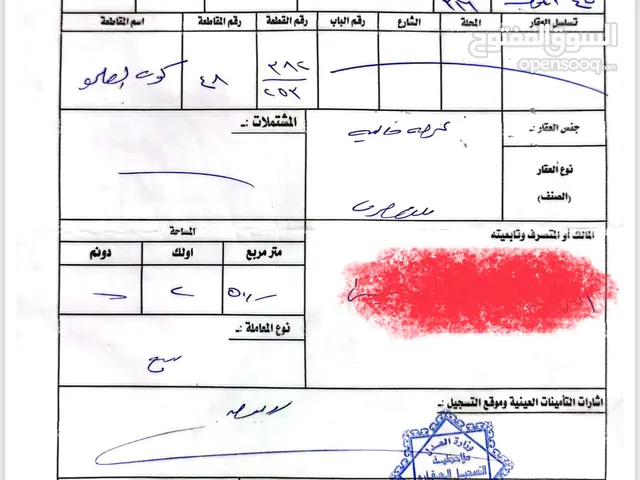 السوق المفتوح
opensooq.com
٣٢٦
تسلسل العقار المحلة الشارع رقم الباب رقم القطعة رقم المقاطعة اسم المقاطعة
٣٨٢/٢٥٣ ٤٨
جنس العقار :ـ عرصة خالية المشتملات :ـ
نوع العقار
(الصنف) ملك صرف
المالك أو المتصرف وتابعيته المساحة
متر مربع اولك دونم
نوع المعاملة :ـ
بيع
اشارات التأمينات العينية وموقع التسجيل :ـ
وزارة العدل
ملاحظية
التسجيل العقاري